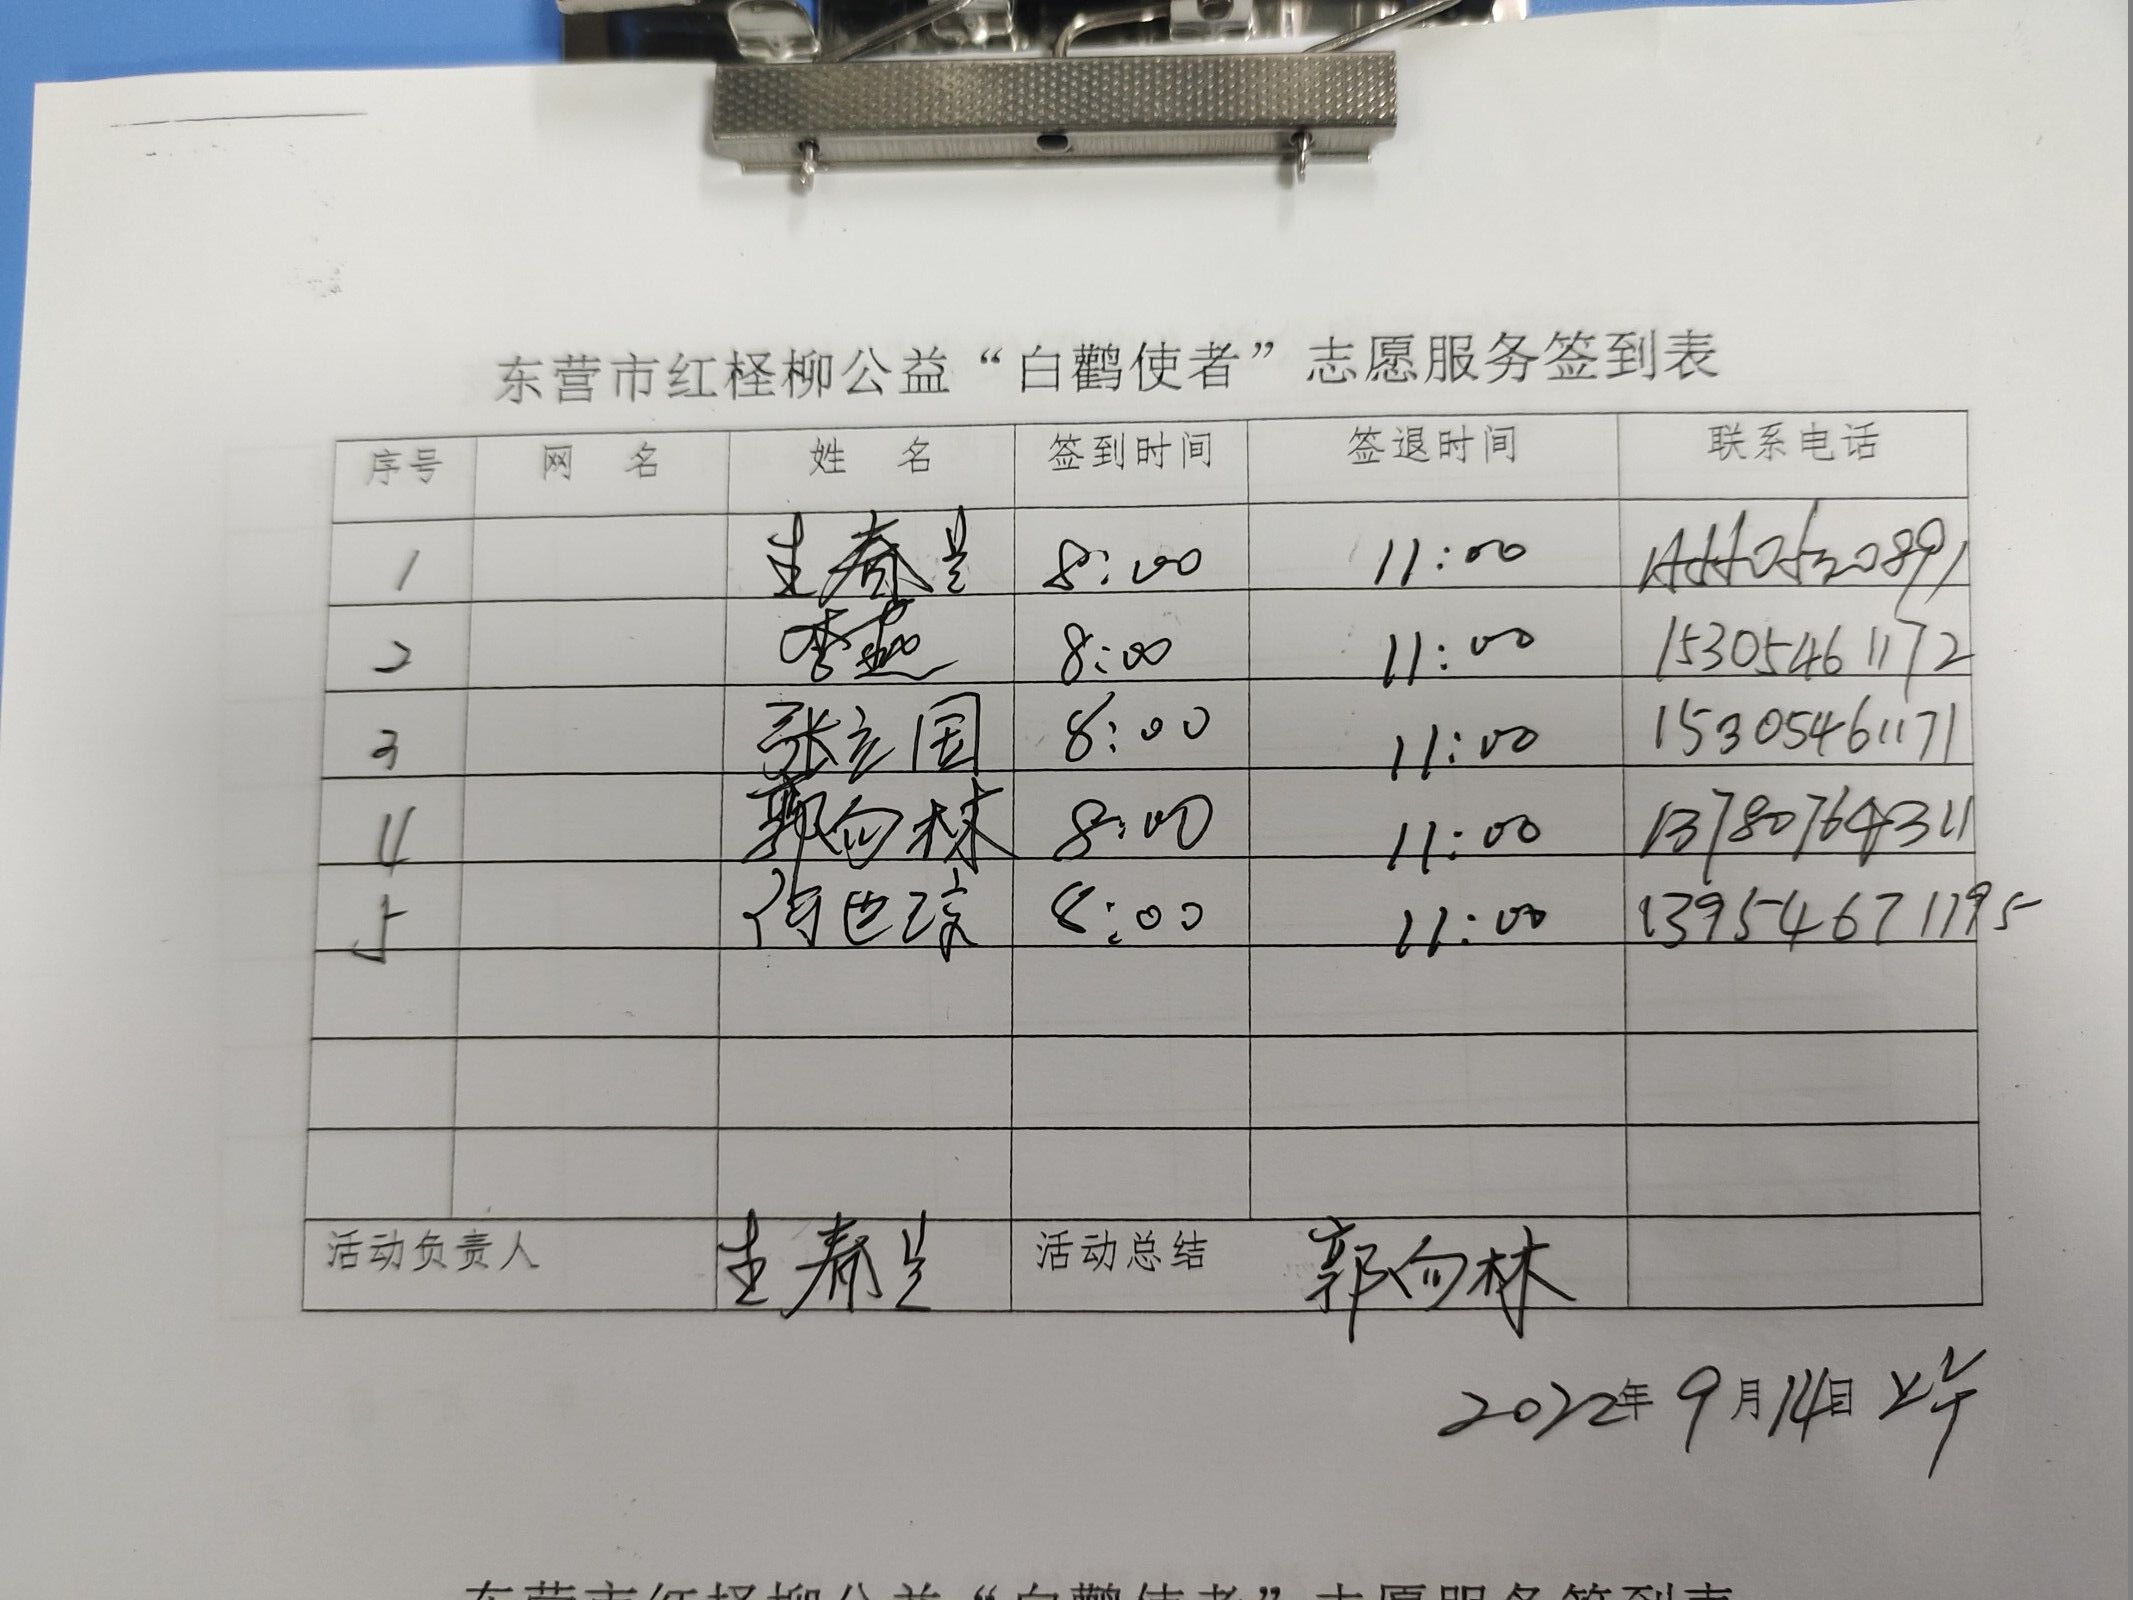 东营市红柽柳公益“白鹳使者”志愿服务签到表
序号 网 名 姓 名 签到时间 签退时间 联系电话
1 8:00 11:00
2 李燕 8:00 11:00 15305461172
3 张立国 8:00 11:00 15305461171
4 郭向林 8:00 11:00 13780764311
5 8:00 11:00 13954671195
活动负责人 活动总结 郭向林
2022年9月14日上午
东营市红柽柳公益“白鹳使者”志愿服务签到表